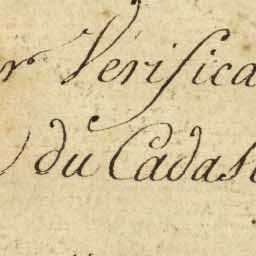 r Vérifica
du Cadas